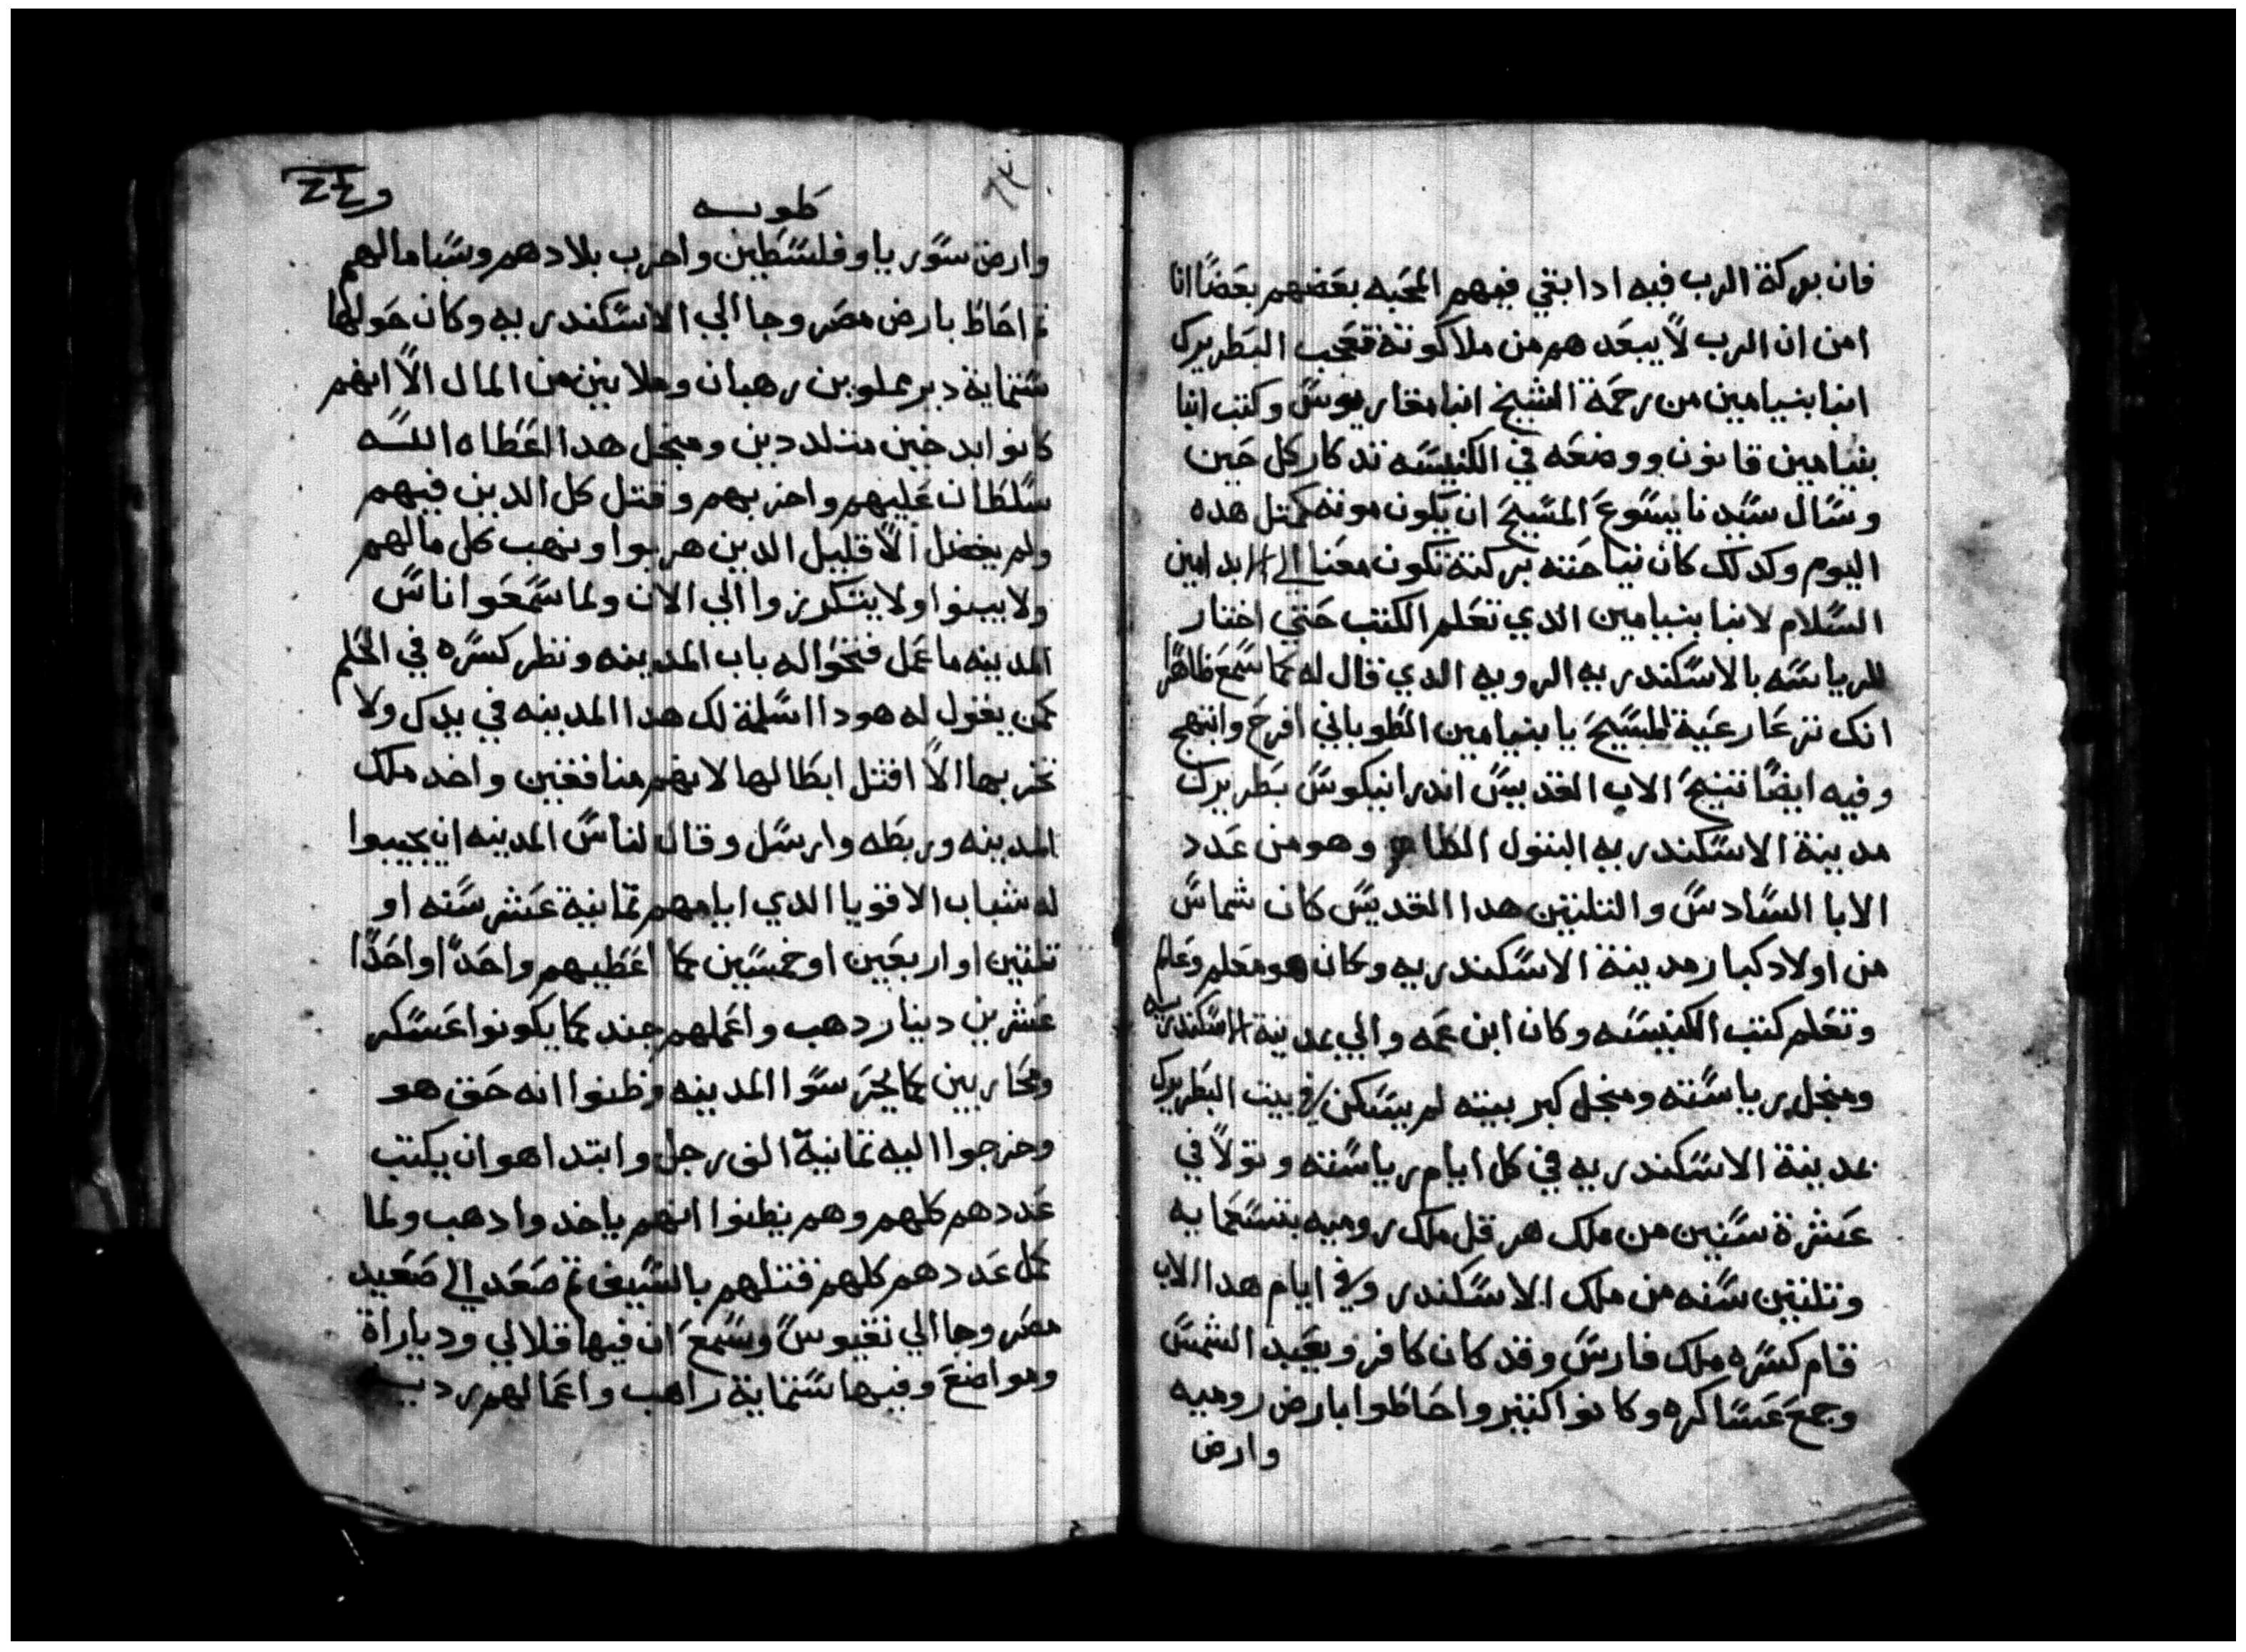 فان بركة الرب فيه ادا بقي فيهم المحبه بعَضهم بعَضًا انا
امن ان الرب لاً يبعَدهم من ملاكوته فتعَجب البَطريرك
انبا بنيامين من رحمَة الشيخ انبا مقاريوسَ وكتب انبا
بنيامين قانون ووضعَه في الكنيسَه تدكار كل حَين
وسَال سَيدنا يسَوعَ المسَيحَ ان يَكون موته كمتل هده
اليوم وكدلك كان نياحَته بركته تكون معَنا الي الابد امين
السَلام لانبا بنيامين الدي تعَلم الكتب حَتي اختار
للرياسَه بالاسَكندريه الرويه الدي قال له كما سَمعَ ظاهرًا
انك تزعَا رعَية المسَيحَ يا بنيامين الطَوباني افرحَ وابتهج
وفيه ايضًا تنيحَ الاب القديسَ اندرانيكوسَ بَطريرك
مدينة الاسَكندريه البتول الطاهر وهو من عَدد
الابا السَادسَ والتلتين هدا القديسَ كان شماسَ
من اولاد كبار مدينة الاسَكندريه وكان هو معَلم وعَلم
وتعَلم كتب الكنيسَه وكان ابن عَمه والي بمدينة الاسَكندريه
ومنجل رياسَته ومنجل كبر بيته لم يسَكن في بيت البَطريرك
بمدينة الاسَكندريه في كل ايام رياسَته وتولاً في
عَشرة سَنين من ملك هرقل ملك روميه بتسَعمايه
وتلتين سَنه من ملك الاسَكندر وفي ايام هدا الاب
قام كسَره ملك فارسَ وقد كان كافر ويعَبد الشمسَ
وجمعَ عَسَاكره وكانوا كتير واحَاطَوا بارض روميه
وارض
طوبه
و٢٤٤
وارض سَوريا وفلسَطَين واخرب بلادهم وسَبا مالهم
تم احَاطَ بارض مصَر وجا الي الاسَكندريه وكان حَولها
سَتماية دير مملوين رهبان وملانين من المال الاً انهم
كانوا ابد حين متلددين ومنجل هدا اعَطَاه اللَه
سَلطَان عَليهم واخربهم وقتل كل الدين فيهم
ولم يفضل الاً قليل الدين هربوا ونهب كل مالهم
ولا يبنوا ولا يتكرزوا الي الان ولما سَمعَوا اناسَ
المدينه ما عَمل فتحَوا له باب المدينه ونظر كسَره في الحَلم
كمن يقول له هودا اسَلمة لك هدا المدينه في يدك ولا
تخربها الاً اقتل ابطَالها لانهم منافقين واخد ملك
المدينه وربطَه وارسَل وقال لناسَ المدينه ان يجيبوا
له شباب الاقويا الدي ايامهم تمانية عَشر سَنه او
تلتين او اربعَين او خمسَين كما اعَطَيهم واحَدًا واحَدًا
عَشرين دينار دهب واعَملهم جند كما يكونوا عَسَكر
ومحَاربين كما يحَرسَوا المدينه وظنوا انه حَق هو
وخرجوا اليه تمانية الف رجل وابتدا هو ان يكتب
عَددهم كلهم وهم يظنوا انهم ياخدوا دهب ولما
كمل عَددهم كلهم قتلهم بالسَيف تم صَعَد الي صَعَيد
مصَر وجا الي نقيوسَ وسَمعَ ان فيها قلالي ودياراة
ومواضعَ وفيها سَتماية راهب واعَمالهم